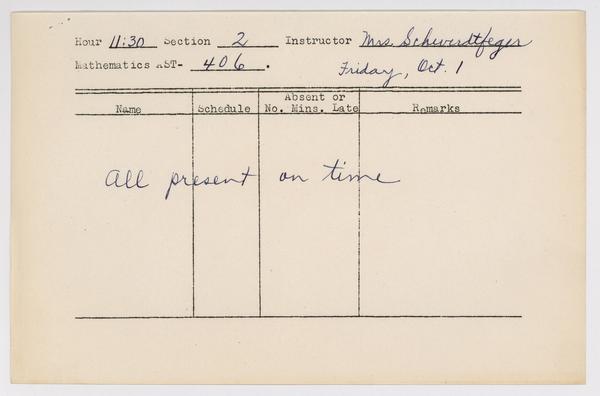 Hour 11:30 Section 2 Instructor Mrs. Schwerdtfeger
Mathematics AST- 406.
Friday, Oct. 1
Name Schedule Absent or No. Mins. Late Remarks
All present on time